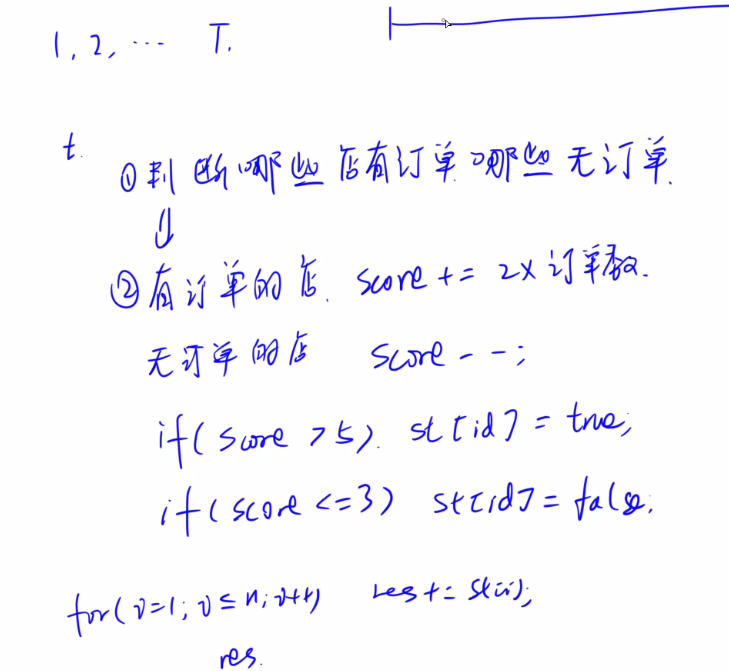 1, 2, ... T.
t.
① 判断哪些店有订单 哪些无订单.
⇓
② 有订单的店. score += 2× 订单数.
无订单的店 score --;
if( score >5). st[id] = true;
if( score <=3) st[id] = false.
for( i=1; i≤n; i++) res += st[i];
res.